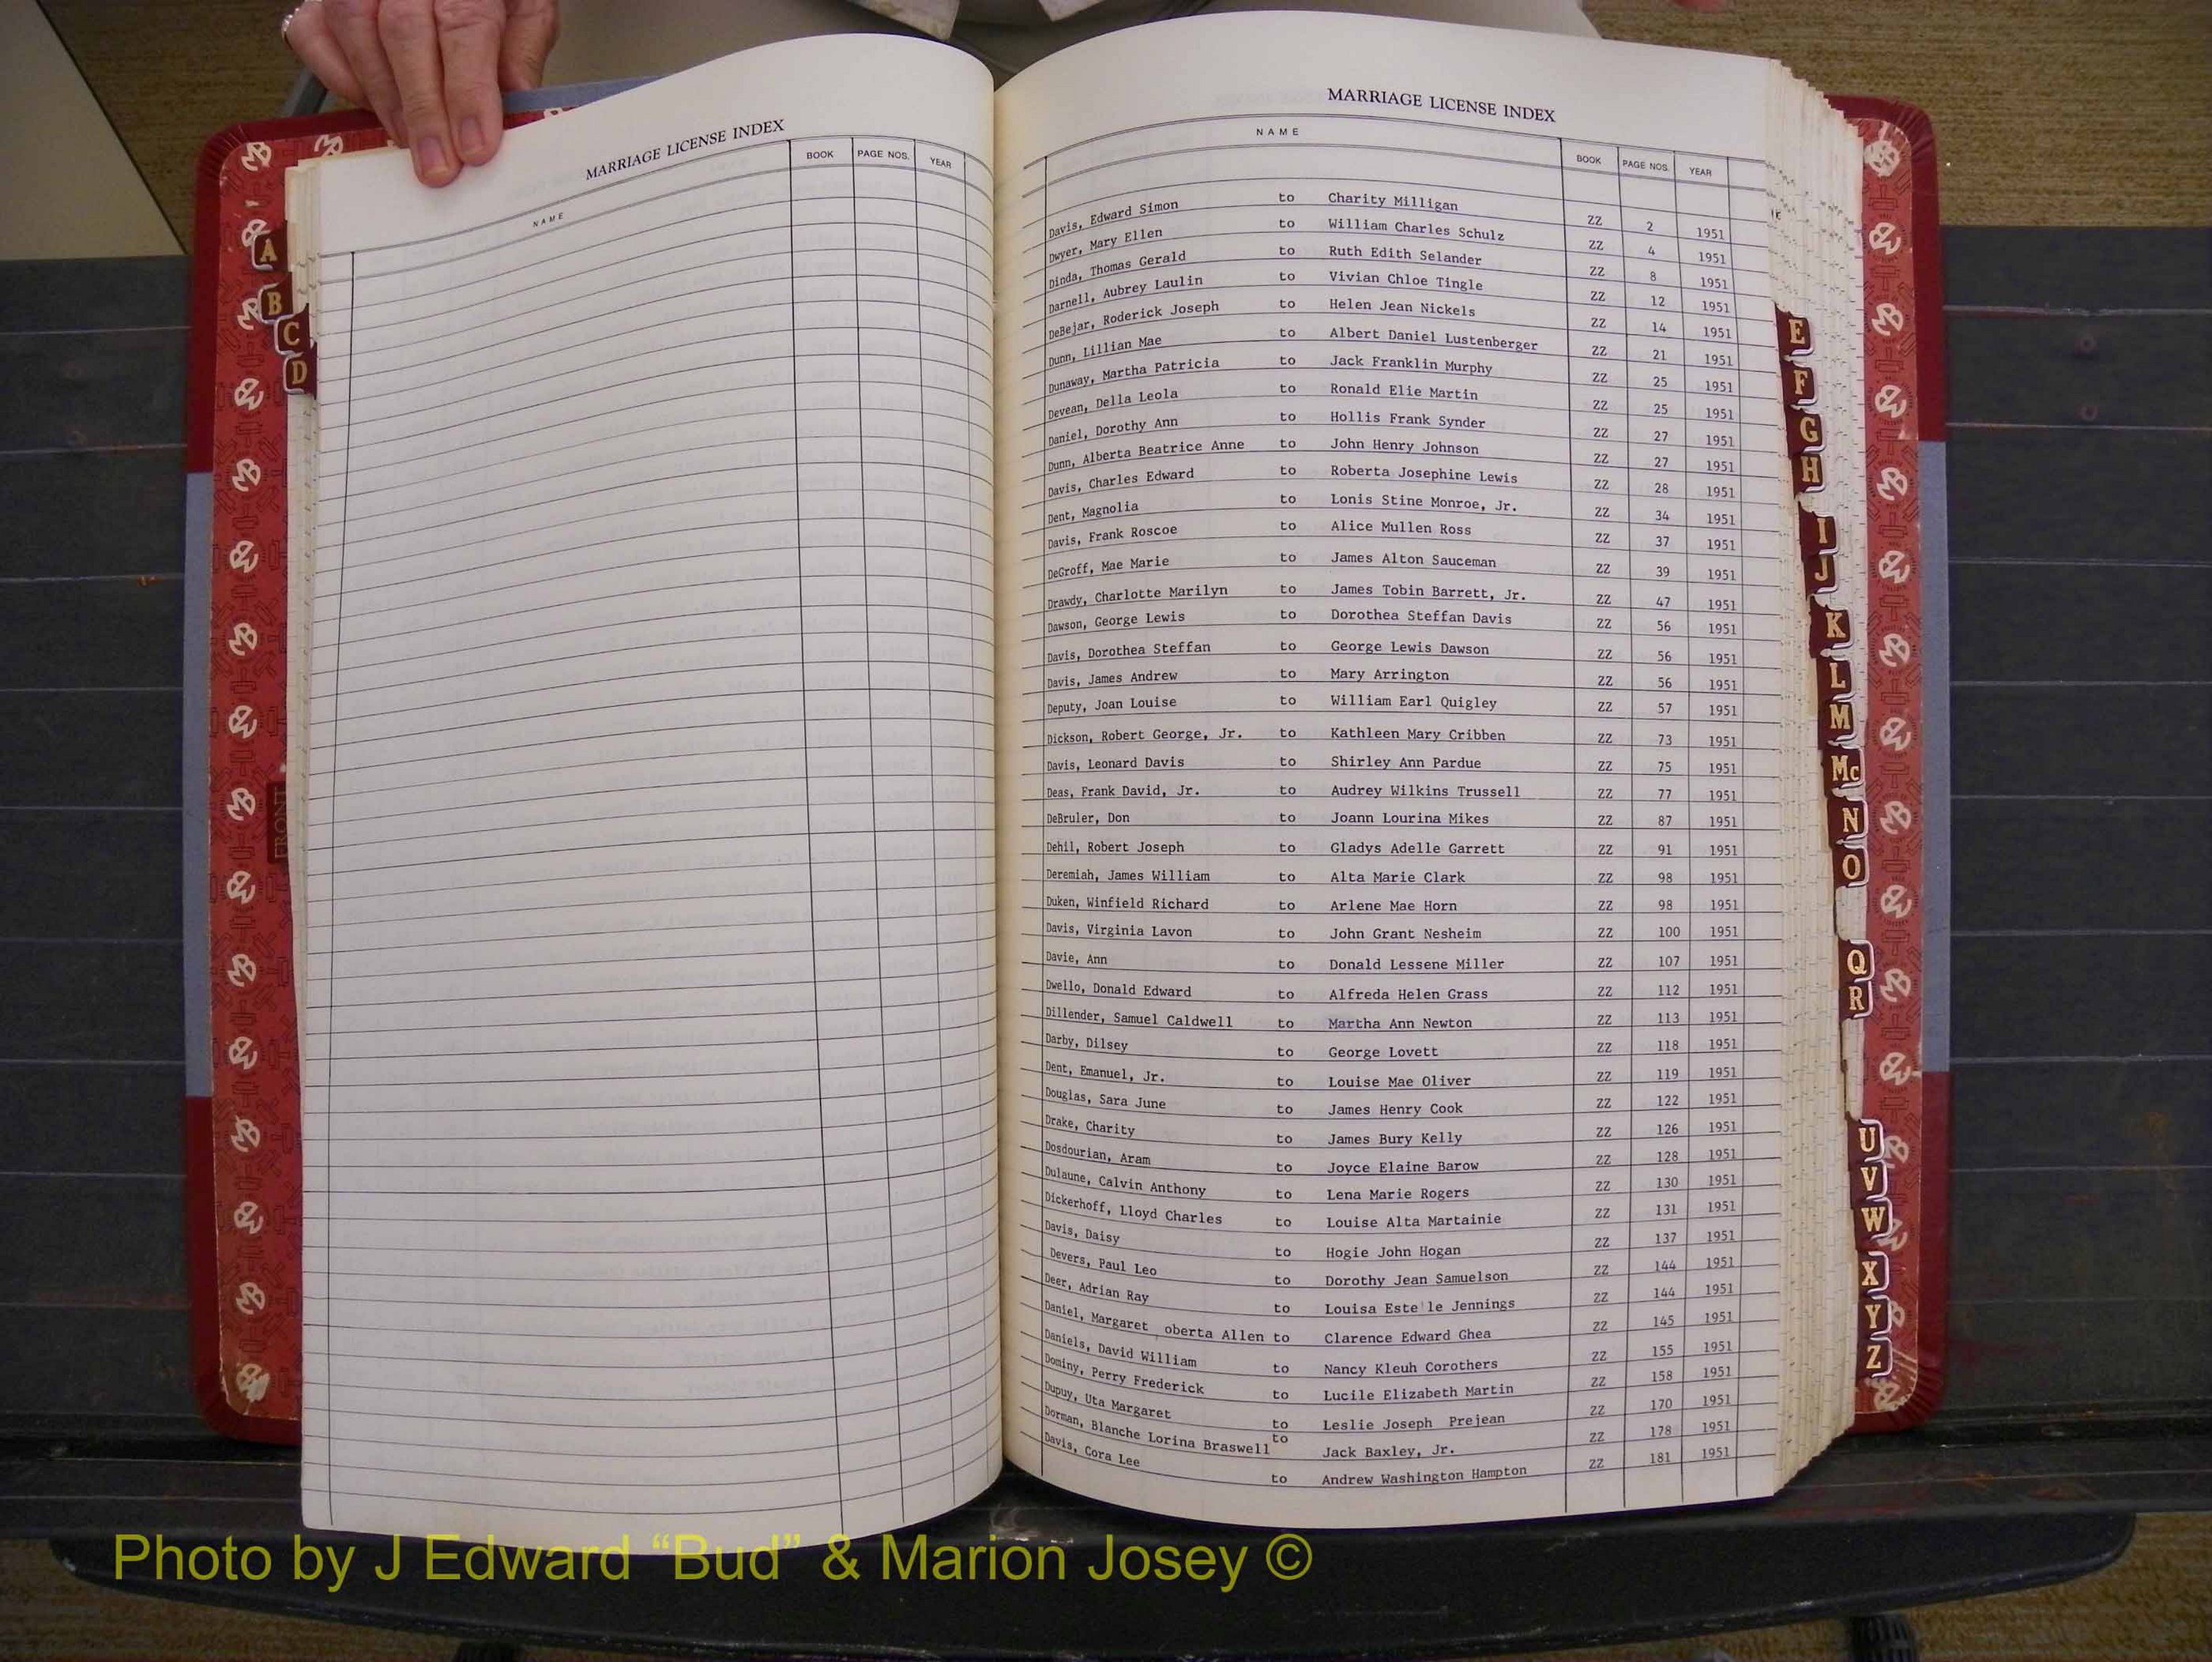 MARRIAGE LICENSE INDEX
NAME BOOK PAGE NOS. YEAR
A
B
C
D
FRONT
MARRIAGE LICENSE INDEX
NAME BOOK PAGE NOS. YEAR
Davis, Edward Simon to Charity Milligan ZZ 2 1951
Dwyer, Mary Ellen to William Charles Schulz ZZ 4 1951
Dinda, Thomas Gerald to Ruth Edith Selander ZZ 8 1951
Darnell, Aubrey Laulin to Vivian Chloe Tingle ZZ 12 1951
DeBejar, Roderick Joseph to Helen Jean Nickels ZZ 14 1951
Dunn, Lillian Mae to Albert Daniel Lustenberger ZZ 21 1951
Dunaway, Martha Patricia to Jack Franklin Murphy ZZ 25 1951
Devean, Della Leola to Ronald Elie Martin ZZ 25 1951
Daniel, Dorothy Ann to Hollis Frank Synder ZZ 27 1951
Dunn, Alberta Beatrice Anne to John Henry Johnson ZZ 27 1951
Davis, Charles Edward to Roberta Josephine Lewis ZZ 28 1951
Dent, Magnolia to Lonis Stine Monroe, Jr. ZZ 34 1951
Davis, Frank Roscoe to Alice Mullen Ross ZZ 37 1951
DeGroff, Mae Marie to James Alton Sauceman ZZ 39 1951
Drawdy, Charlotte Marilyn to James Tobin Barrett, Jr. ZZ 47 1951
Dawson, George Lewis to Dorothea Steffan Davis ZZ 56 1951
Davis, Dorothea Steffan to George Lewis Dawson ZZ 56 1951
Davis, James Andrew to Mary Arrington ZZ 56 1951
Deputy, Joan Louise to William Earl Quigley ZZ 57 1951
Dickson, Robert George, Jr. to Kathleen Mary Cribben ZZ 73 1951
Davis, Leonard Davis to Shirley Ann Pardue ZZ 75 1951
Deas, Frank David, Jr. to Audrey Wilkins Trussell ZZ 77 1951
DeBruler, Don to Joann Lourina Mikes ZZ 87 1951
Dehil, Robert Joseph to Gladys Adelle Garrett ZZ 91 1951
Deremiah, James William to Alta Marie Clark ZZ 98 1951
Duken, Winfield Richard to Arlene Mae Horn ZZ 98 1951
Davis, Virginia Lavon to John Grant Nesheim ZZ 100 1951
Davie, Ann to Donald Lessene Miller ZZ 107 1951
Dwello, Donald Edward to Alfreda Helen Grass ZZ 112 1951
Dillender, Samuel Caldwell to Martha Ann Newton ZZ 113 1951
Darby, Dilsey to George Lovett ZZ 118 1951
Dent, Emanuel, Jr. to Louise Mae Oliver ZZ 119 1951
Douglas, Sara June to James Henry Cook ZZ 122 1951
Drake, Charity to James Bury Kelly ZZ 126 1951
Dosdourian, Aram to Joyce Elaine Barow ZZ 128 1951
Dulaune, Calvin Anthony to Lena Marie Rogers ZZ 130 1951
Dickerhoff, Lloyd Charles to Louise Alta Martainie ZZ 131 1951
Davis, Daisy to Hogie John Hogan ZZ 137 1951
Devers, Paul Leo to Dorothy Jean Samuelson ZZ 144 1951
Deer, Adrian Ray to Louisa Este'le Jennings ZZ 144 1951
Daniel, Margaret oberta Allen to Clarence Edward Ghea ZZ 145 1951
Daniels, David William to Nancy Kleuh Corothers ZZ 155 1951
Dominy, Perry Frederick to Lucile Elizabeth Martin ZZ 158 1951
Dupuy, Uta Margaret to Leslie Joseph Prejean ZZ 170 1951
Dorman, Blanche Lorina Braswell to Jack Baxley, Jr. ZZ 178 1951
Davis, Cora Lee to Andrew Washington Hampton ZZ 181 1951
E
F
G
H
I
J
K
L
M
Mc
N
O
Q
R
U
V
W
X
Y
Z
Photo by J Edward “Bud” & Marion Josey ©